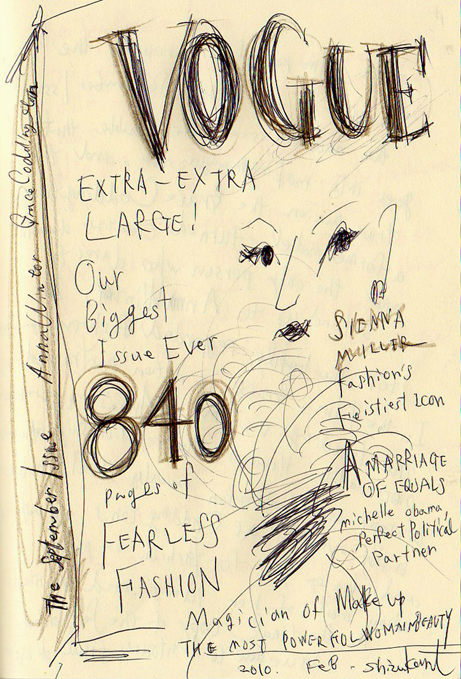 VOGUE
EXTRA-EXTRA
LARGE!
Our
Biggest
Issue Ever
840
pages of
FEARLESS
FASHION
SIENNA
MILLER
fashion's
Feistiest Icon
A MARRIAGE
OF EQUALS
michelle obama
Perfect Political
Partner
Magician of Makeup
THE MOST POWERFUL WOMAN BEAUTY
2010. Feb -
The September Issue Anna Wintor Grace Coddington